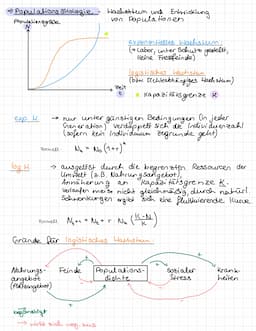 Populationsökologie: Wachstum und Entwicklung
von Populationen
Populationsgröße
N
exponentielles Wachstum:
(= Labor, unter Schutz gestellt,
keine Fressfeinde)
logistisches Wachstum
(bin dichteabhängiges Wachstum)
K Kapazitätsgrenze K
Zeit
t
exp. W. → nur unter günstigen Bedingungen (in jeder
Generation) verdoppelt sich die Individuenzahl
(sofern kein Individuum zugrunde geht)
Formel:
log. W. → ausgelöst durch die begrenzten Ressourcen der
Umwelt (z.B. Nahrungsangebot),
Annäherung an Kapazitätsgrenze K
verläuft meist nicht gleichmäßig, durch natürl.
Schwankungen ergibt sich eine fluktuierende Kurve
Formel:
Gründe für logistisches Wachstum
Nahrungs-
angebot
Feinde
Populations-
dichte
sozialer
Stress
Krank-
heiten
begünstigt
→ wirkt sich neg. aus